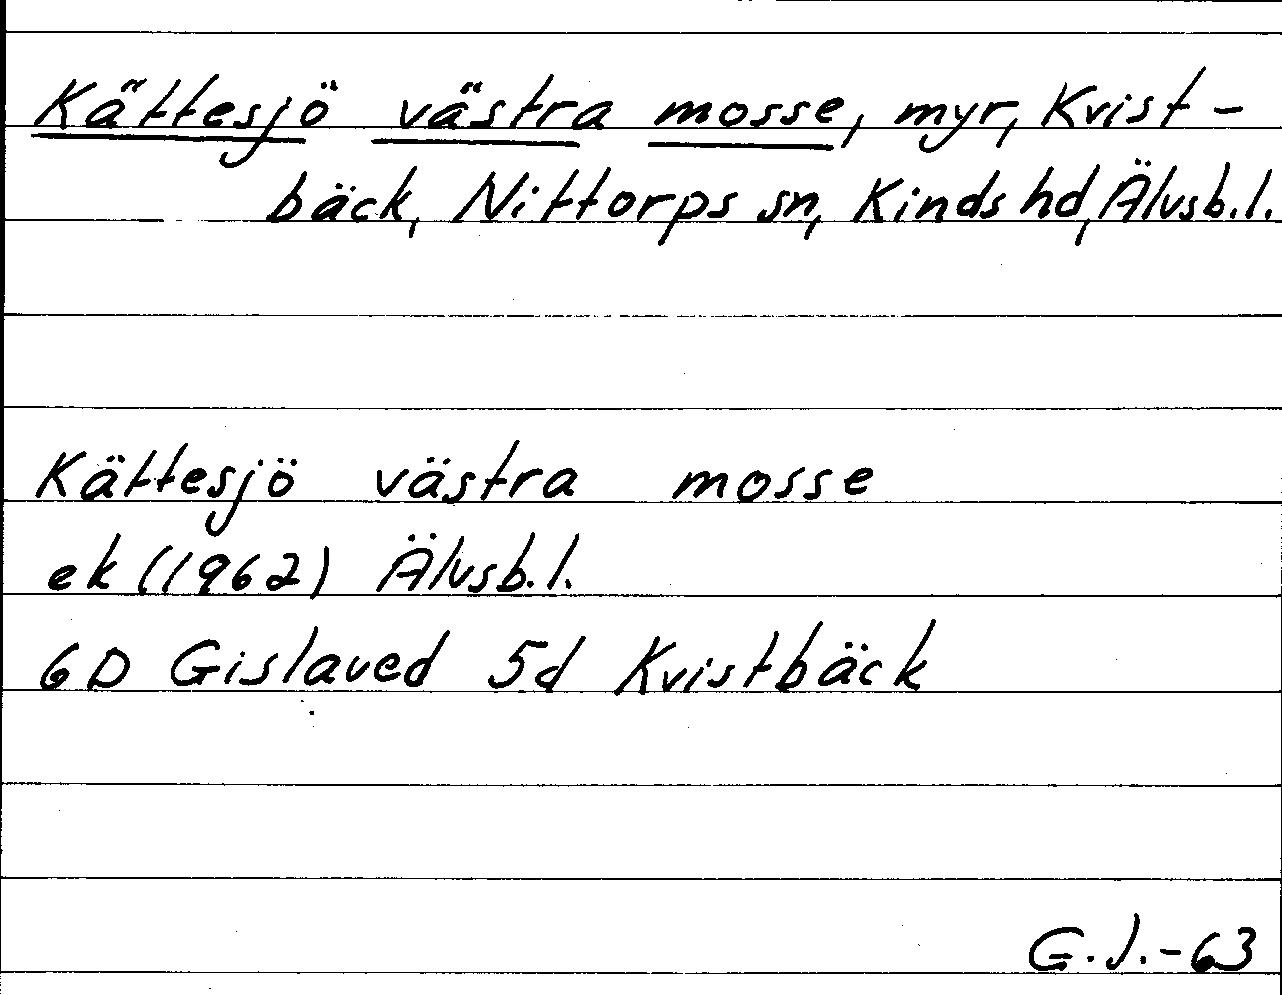 Kättesjö västra mosse, myr, Kvist-
bäck, Nittorps sn, Kinds hd, Älvsb.l.
Kättesjö västra mosse
ek (1962) Älvsb.l.
6D Gislaved 5d Kvistbäck
G.J.-63